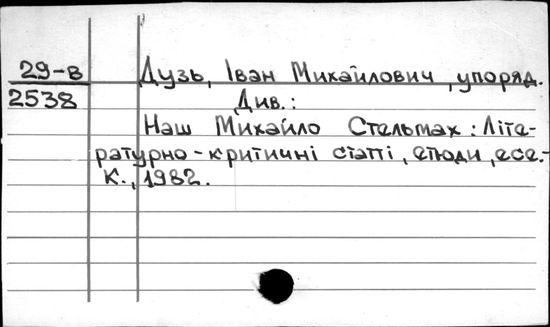 29-в
2538
Дузь, Іван Михайлович, упоряд.
Див.:
Наш Михайло Стельмах: Літе-
ратурно-критичні статті, етюди, есе.-
К., 1982.